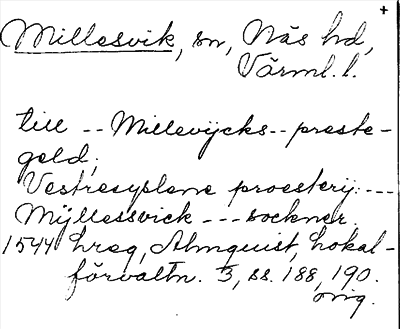 +
Millesvik, sn, Näs hd,
Värml. l.
till -- Millevijcks -- preste-
geld;
Vestresyslene proesterij: ---
Mijllessvick --- sockner.
1544 hreg, Almquist, Lokal-
förvaltn. 3, ss. 188, 190.
orig.